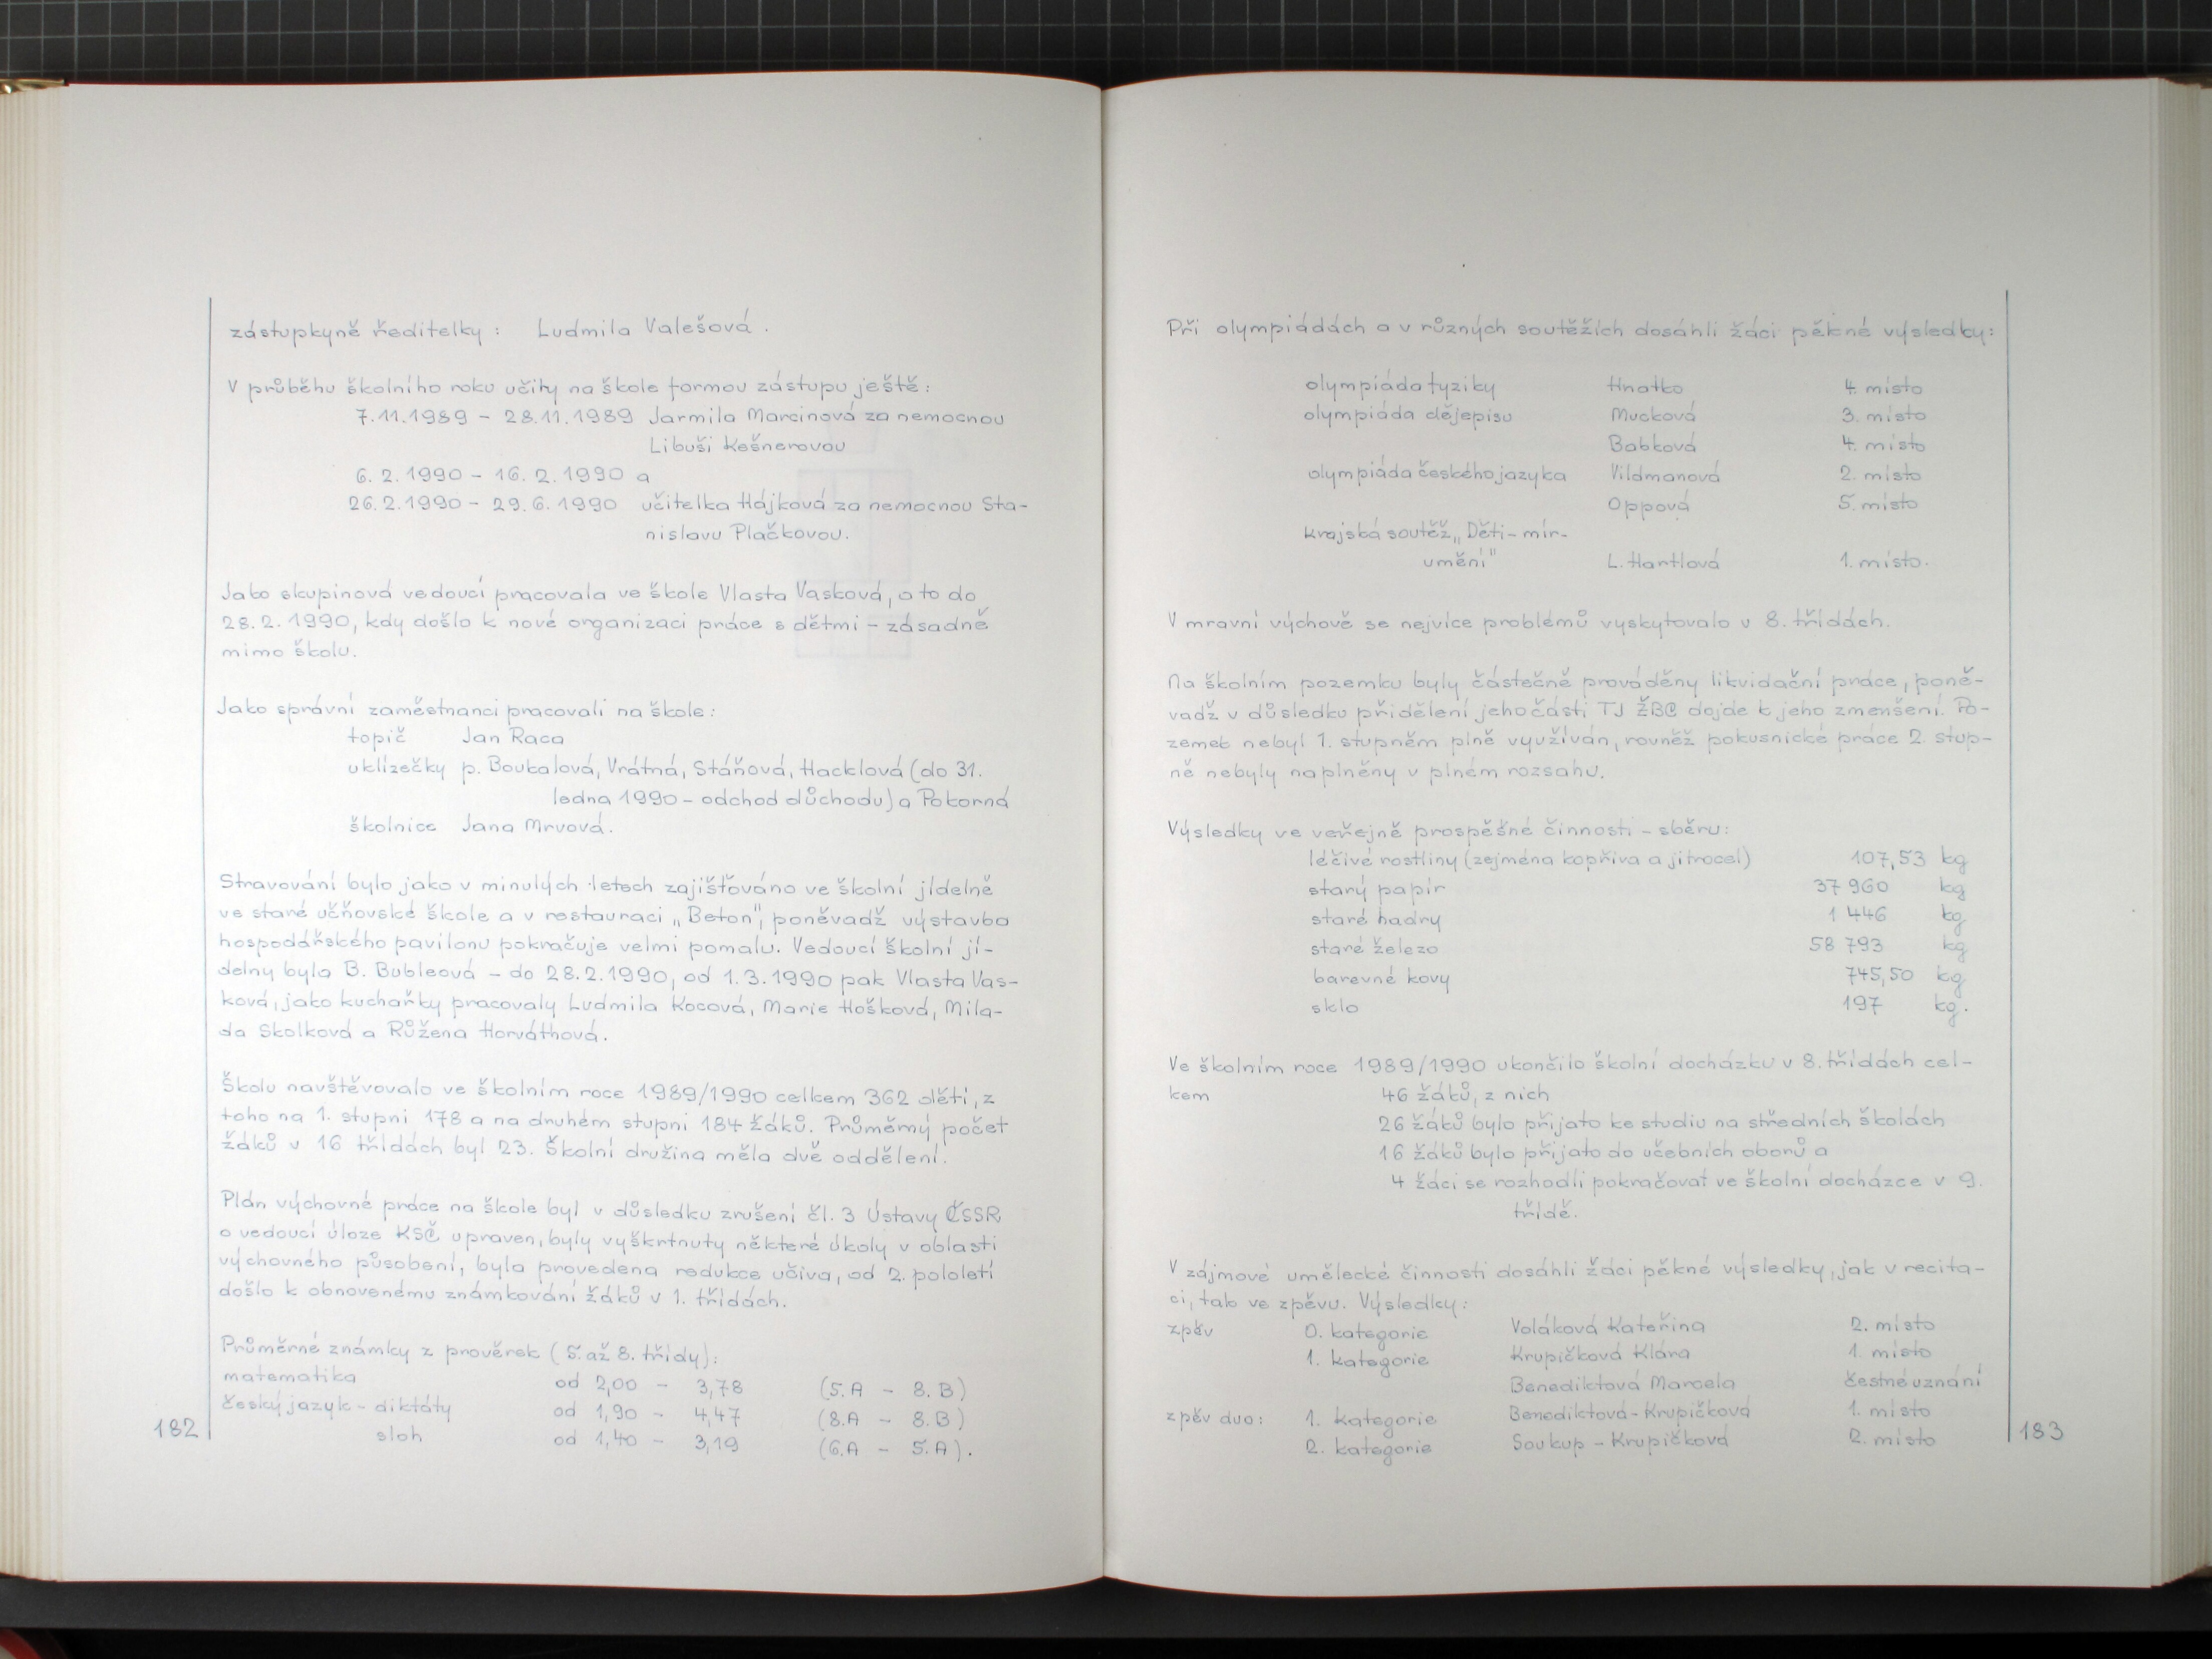 zástupkyně ředitelky : Ludmila Valešová .
V průběhu školního roku učily na škole formou zástupu ještě :
7. 11. 1989 - 28. 11. 1989 Jarmila Marcinová za nemocnou
Libuši Kešnerovou
6. 2. 1990 - 16. 2. 1990 a
26. 2. 1990 - 29. 6. 1990 učitelka Hájková za nemocnou Sta-
nislavu Plačkovou.
Jako skupinová vedoucí pracovala ve škole Vlasta Vasková, a to do
28. 2. 1990, kdy došlo k nové organizaci práce s dětmi - zásadně
mimo školu.
Jako správní zaměstnanci pracovali na škole :
topič Jan Raca
uklízečky p. Boukalová, Vrátná, Stáňová, Hacklová (do 31.
ledna 1990 - odchod důchodu) a Pokorná
školnice Jana Mrvová.
Stravování bylo jako v minulých letech zajišťováno ve školní jídelně
ve staré učňovské škole a v restauraci „Beton", poněvadž výstavba
hospodářského pavilonu pokračuje velmi pomalu. Vedoucí školní jí-
delny byla B. Bubleová - do 28. 2. 1990, od 1. 3. 1990 pak Vlasta Vas-
ková, jako kuchařky pracovaly Ludmila Kocová, Marie Hošková, Mila-
da Skolková a Růžena Horváthová.
Školu navštěvovalo ve školním roce 1989/1990 celkem 362 dětí, z
toho na 1. stupni 178 a na druhém stupni 184 žáků. Průměrný počet
žáků v 16 třídách byl 23. Školní družina měla dvě oddělení.
Plán výchovné práce na škole byl v důsledku zrušení čl. 3 Ústavy ČSSR
o vedoucí úloze KSČ upraven, byly vyškrtnuty některé úkoly v oblasti
výchovného působení, byla provedena redukce učiva, od 2. pololetí
došlo k obnovenému známkování žáků v 1. třídách.
Průměrné známky z prověrek (5. až 8. třídy) :
matematika od 2,00 - 3,78 (5.A - 8. B)
český jazyk - diktáty od 1,90 - 4,47 (8.A - 8. B)
sloh od 1,40 - 3,19 (6.A - 5. A).
182
Při olympiádách a v různých soutěžích dosáhli žáci pěkné výsledky :
olympiáda fyziky Hnatko 4. místo
olympiáda dějepisu Mucková 3. místo
Babková 4. místo
olympiáda českého jazyka Vildmanová 2. místo
Oppová 5. místo
krajská soutěž „Děti - mír -
umění" L. Hartlová 1. místo.
V mravní výchově se nejvíce problémů vyskytovalo v 8. třídách.
Na školním pozemku byly částečně prováděny likvidační práce, poně-
vadž v důsledku přidělení jeho části TJ ŽBC dojde k jeho zmenšení. Po-
zemek nebyl 1. stupněm plně využíván, rovněž pokusnické práce 2. stup-
ně nebyly naplněny v plném rozsahu.
Výsledky ve veřejně prospěšné činnosti - sběru :
léčivé rostliny (zejména kopřiva a jitrocel) 107,53 kg
starý papír 37 960 kg
staré hadry 1 446 kg
staré železo 58 793 kg
barevné kovy 745,50 kg
sklo 197 kg.
Ve školním roce 1989/1990 ukončilo školní docházku v 8. třídách cel-
kem 46 žáků, z nich
26 žáků bylo přijato ke studiu na středních školách
16 žáků bylo přijato do učebních oborů a
4 žáci se rozhodli pokračovat ve školní docházce v 9.
třídě.
V zájmové umělecké činnosti dosáhli žáci pěkné výsledky, jak v recita-
ci, tak ve zpěvu. Výsledky :
zpěv 0. kategorie Voláková Kateřina 2. místo
1. kategorie Krupičková Klára 1. místo
Benediktová Marcela čestné uznání
zpěv duo : 1. kategorie Benediktová - Krupičková 1. místo
2. kategorie Soukup - Krupičková 2. místo
183